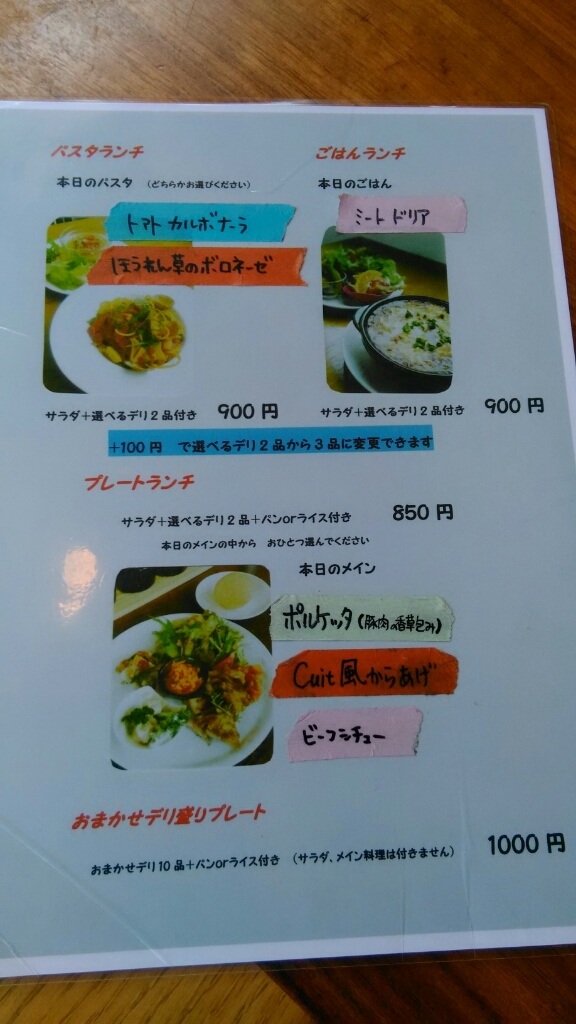 パスタランチ
本日のパスタ （どちらかお選びください）
トマト カルボナーラ
ほうれん草のボロネーゼ
サラダ＋選べるデリ２品付き 900 円
ごはんランチ
本日のごはん
ミート ドリア
サラダ＋選べるデリ２品付き 900 円
＋100 円 で選べるデリ２品から３品に変更できます
プレートランチ
サラダ＋選べるデリ２品＋パンorライス付き 850 円
本日のメインの中から おひとつ選んでください
本日のメイン
ポルケッタ（豚肉の香草包み）
Cuit 風からあげ
ビーフシチュー
おまかせデリ盛りプレート
おまかせデリ10品＋パンorライス付き （サラダ、メイン料理は付きません） 1000 円